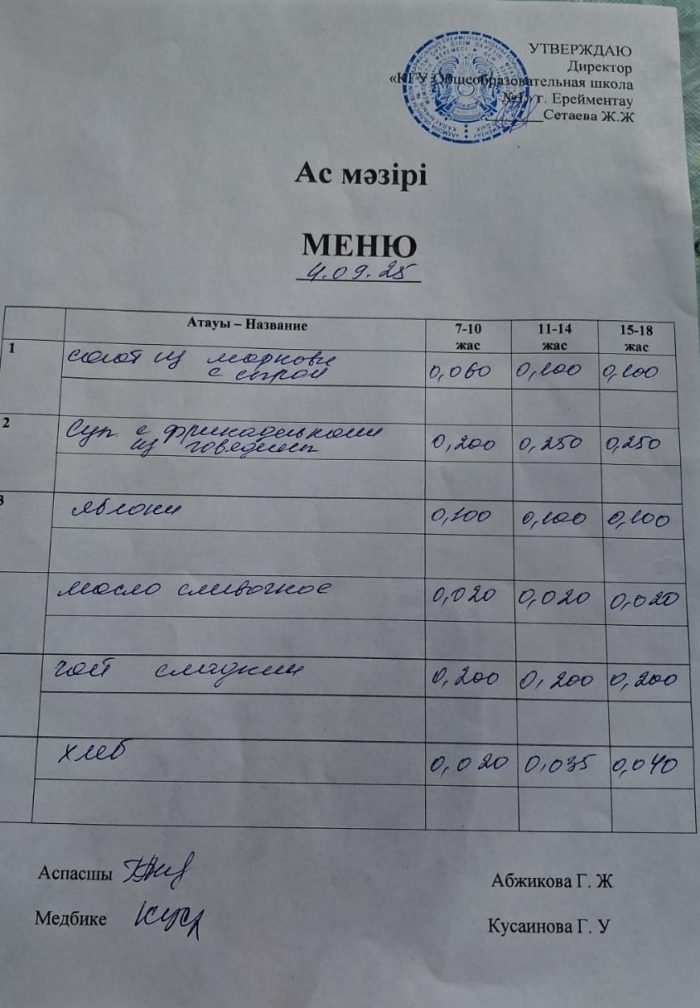 УТВЕРЖДАЮ
Директор
«КГУ Общеобразовательная школа
№1» г. Ерейментау
Сетаева Ж.Ж
Ас мәзірі
МЕНЮ
4.09.25
Атауы – Название 7-10 жас 11-14 жас 15-18 жас
1 салат из моркови с сыром 0,060 0,100 0,100
2 Суп с фрикадельками из говядины 0,200 0,250 0,250
3 яблоки 0,100 0,100 0,100
масло сливочное 0,020 0,020 0,020
чай сладкий 0,200 0,200 0,200
хлеб 0,020 0,035 0,040
Аспасшы Абжикова Г. Ж
Медбике Кусаинова Г. У